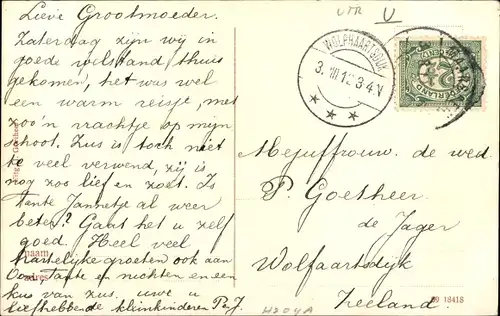 Lieve Grootmoeder.
Zaterdag zijn wij in
goede welstand thuis
gekomen, het was wel
een warm reisje, met
zoo'n vrachtje op mijn
schoot. Zus is toch niet
te veel verwend, zij is
nog zoo lief en zoet. Is
Tante Jannetje al weer
beter? Gaat het u zelf
goed. Heel veel
hartelijke groeten ook aan
Oom Tante en nichten en een
kus van zus. uwe u
liefhebbende kleinkinderen P en J.
naam
adres
UTR
U
WOLPHAARTSDIJK
3. VIII 12 3-4 N
NEDERLAND
2½
Mejuffrouw. de wed.
P. Goetheer
de Jager
Wolfaartsdijk
Zeeland.
18418
H204A